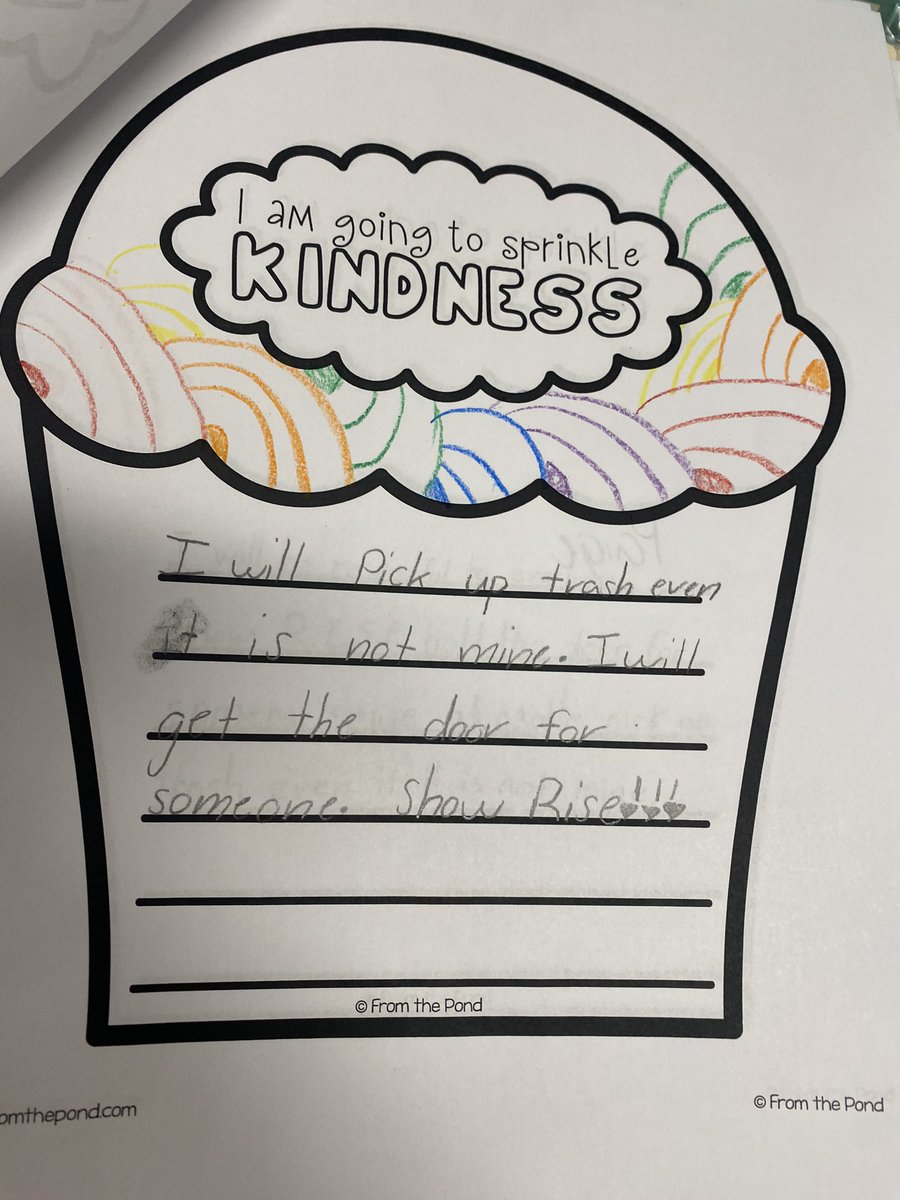 I am going to sprinkle
KINDNESS
I will Pick up trash even
it is not mine. I will
get the door for
someone. Show Rise!!!
© From the Pond
omthepond.com
© From the Pond